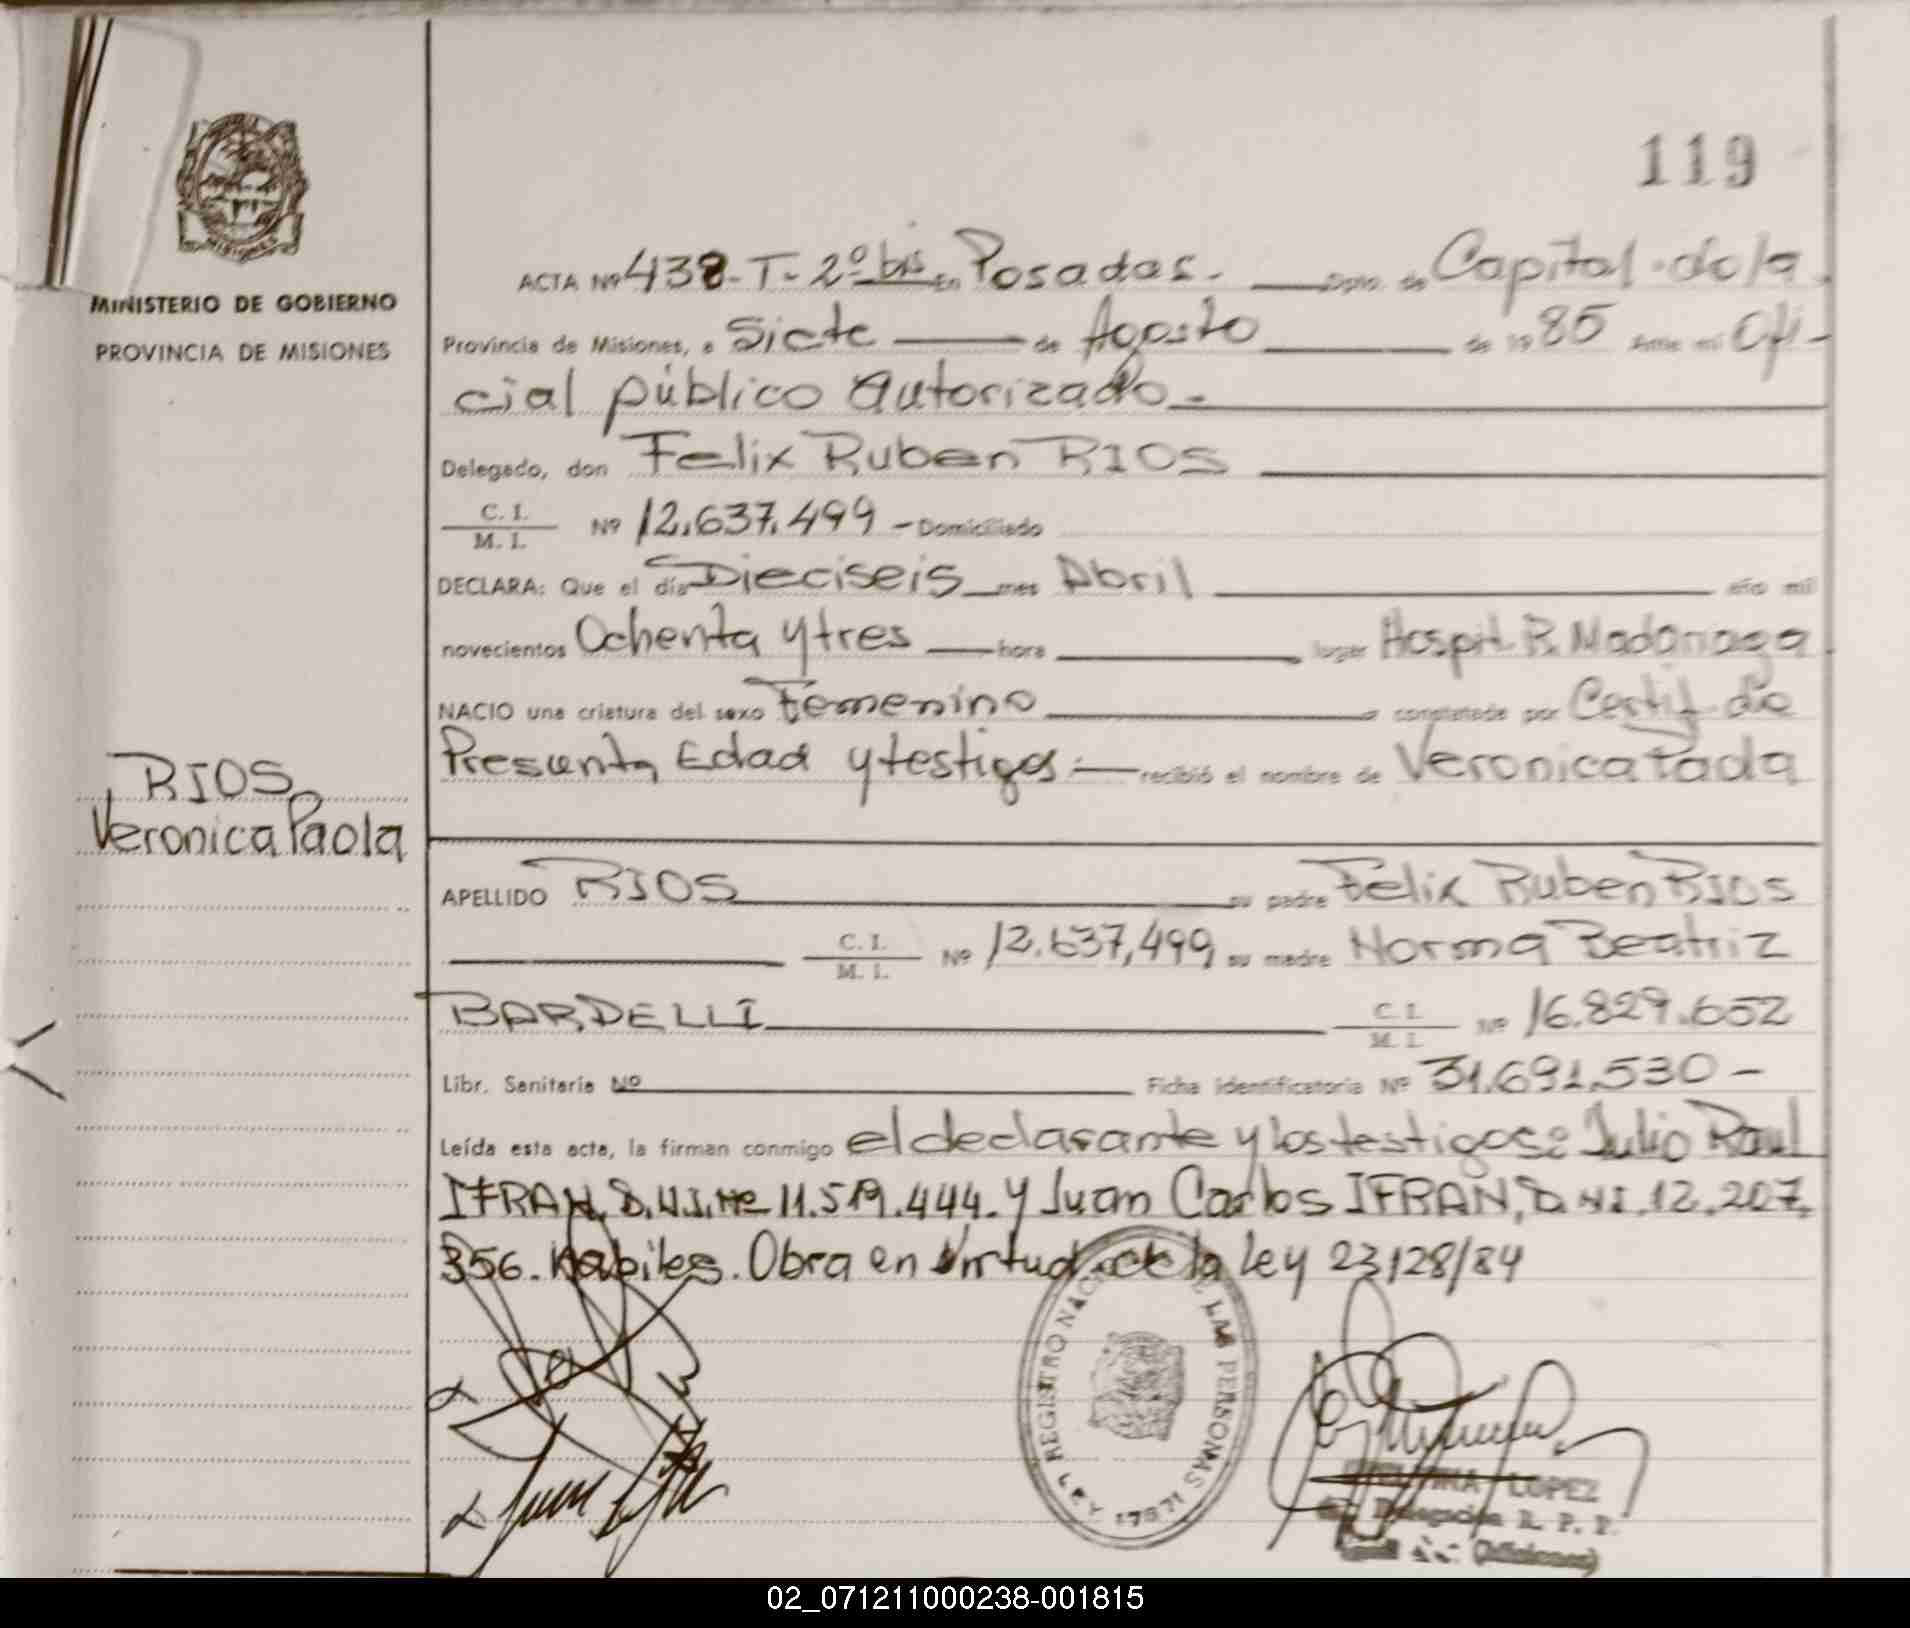 119
MISIONES
MINISTERIO DE GOBIERNO
PROVINCIA DE MISIONES
RIOS
Veronica Paola
ACTA Nº 438-T-2º bis En Posadas. Dpto. de Capital de la
Provincia de Misiones, a Siete de Agosto de 1985 Ante mi Ofi-
cial público Autorizado.-
Delegado, don Felix Ruben RIOS
C. I.
M. I. Nº 12.637.499 - Domiciliado
DECLARA: Que el día Dieciseis mes Abril año mil
novecientos Ochenta y tres hora lugar Hospit. R. Madariaga
NACIO una criatura del sexo Femenino constatado por Certif. de
Presunta Edad y testigos.- recibió el nombre de Veronica Paola
APELLIDO RIOS su padre Felix Ruben RIOS
C. I.
M. I. Nº 12.637,499, su madre Norma Beatriz
BARDELLI C. I.
M. I. Nº 16.829.652
Libr. Sanitaria Nº Ficha identificatoria Nº 31.691.530-
Leída esta acta, la firman conmigo el declarante y los testigos: Julio Raul
IFRAN, D.N.I. Nº 11.519.444. Y Juan Carlos IFRAN, D.N.I. 12.207.
356. habiles. Obra en Virtud de la Ley 23128/84
REGISTRO NAC DE LAS PERSONAS
LEY 17671
LOPEZ
Delegación R. P. P.
(Misiones)
02_071211000238-001815